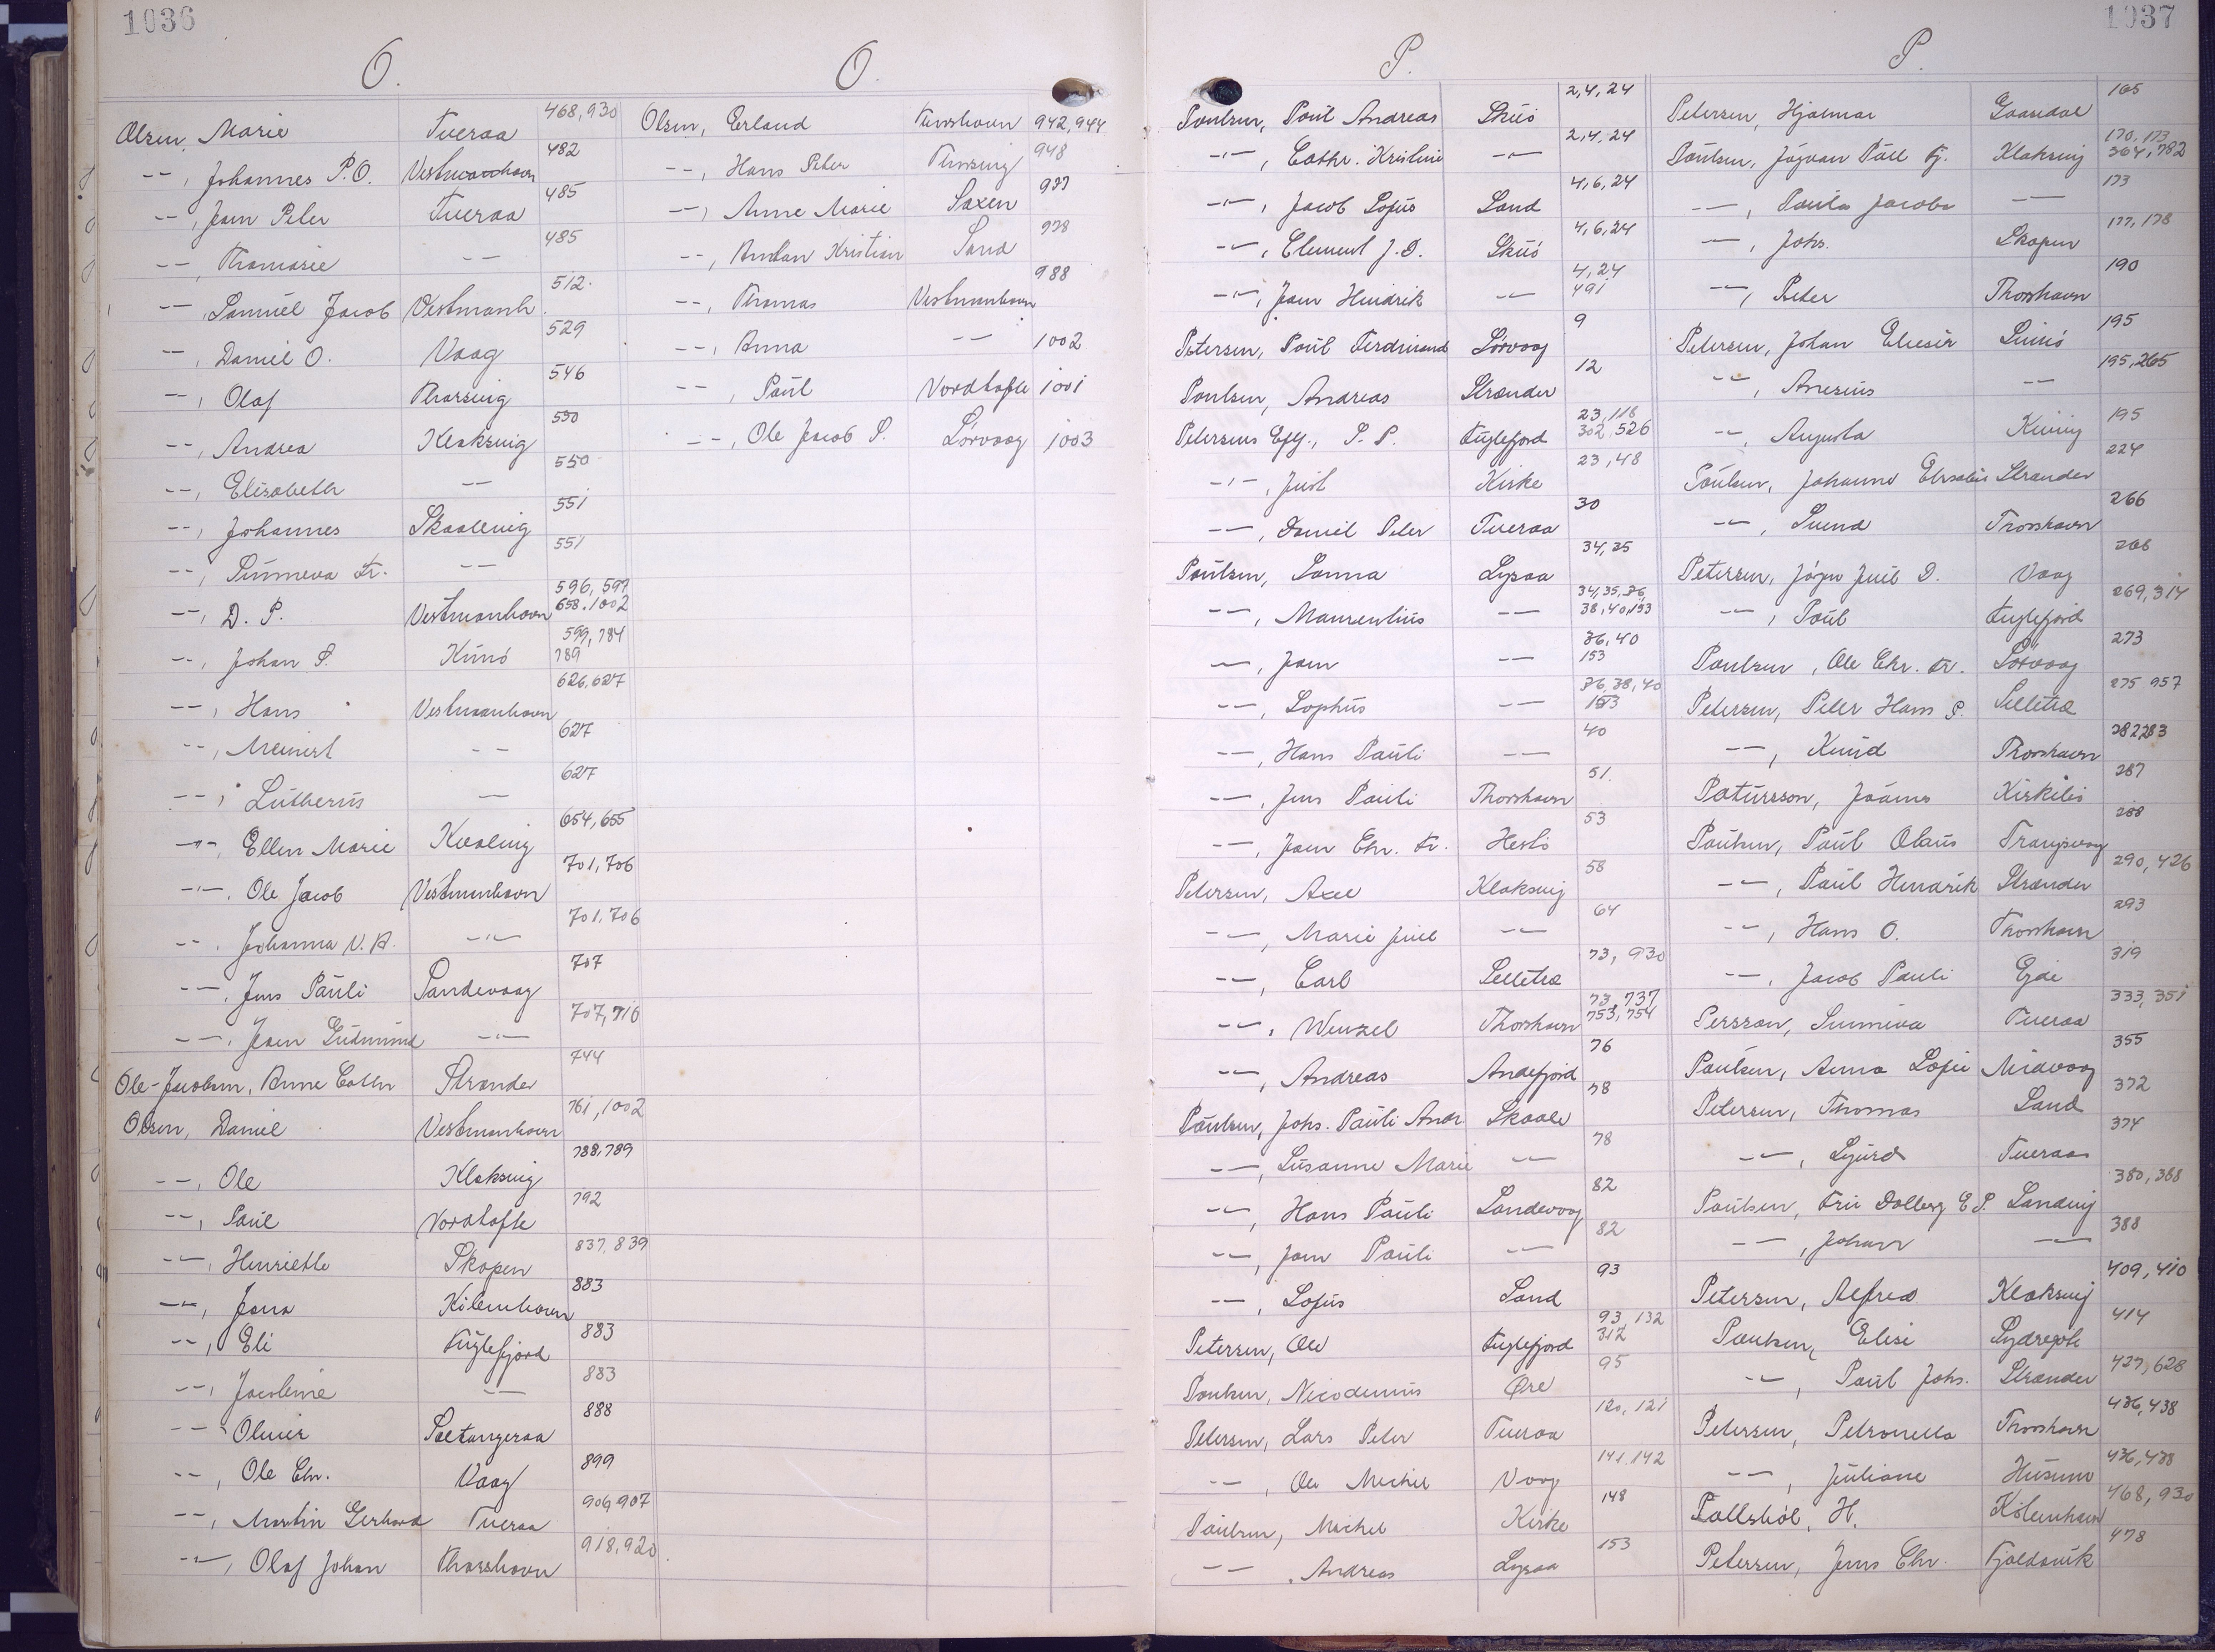 1036
O.
Olsen, Marie Tveraa 468,930
-"-, Johannes P.O. Vestmanhavn 482
-"-, Joen Peter Tveraa 485
-"-, Thomasie -"- 485
-"-, Samuel Jacob Vestmanh. 512.
-"-, Daniel O. Vaag 529
-"-, Olaf Thorsvig 546
-"-, Andrea Klaksvig 550
-"-, Elisabeth -"- 550
-"-, Johannes Skaalevig 551
-"-, Sunneva Fr. -"- 551
-"-, D. P. Vestmanhavn 596, 597 658.1002
-"-, Johan P. Kunö 599, 784 789
-"-, Hans Vestmanhavn 626,627
-"-, Meinert -"- 627
-"-, Lutherus -"- 627
-"-, Ellen Marie Kvalvig 654,655
-"-, Ole Jacob Vestmanhavn 701,706
-"-, Johanna V.A. -"- 701,706
-"-, Jens Pauli Sandevaag 707
-"-, Joen Gudmund -"- 707,716
Ole-Jacobsen, Anne Cathr Strænder 744
Olsen, Daniel Vestmanhavn 761,1002
-"-, Ole Klaksvig 788,789
-"-, Paul Nordtofte 792
-"-, Henriette Skopen 837,839
-"-, Jana Köbenhavn 883
-"-, Eli Fuglefjord 883
-"-, Jacobine -"- 883
-"-, Oliver Saltangeraa 888
-"-, Ole Chr. Vaag 899
-"-, Martin Gerhard Tveraa 906,907
-"-, Olaf Johan Thorshavn 918,920
O.
Olsen, Erland Thorshavn 942,944
-"-, Hans Peter Thorsvig 948
-"-, Anne Marie Saxen 937
-"-, Anton Kristian Sand 978
-"-, Thomas Vestmanhavn 988
-"-, Anna -"- 1002
-"-, Paul Nordtofte 1001
-"-, Ole Jacob P. Sörvaag 1003
1037
P.
Poulsen, Poul Andreas Skuö 2,4,24
-"-, Cathr. Kristine -"- 2,4,24
-"-, Jacob Sofus Sand 4,6,24
-"-, Clement J.D. Skuö 4,6,24
-"-, Joen Hindrik -"- 4,24 491
Petersen, Poul Ferdinand Sörvaag 9
Poulsen, Andreas Strænder 12
Petersens Eftf., P. P. Fuglefjord 23,118 302,526
-"-, Just Kirke 23,48
-"-, Daniel Peter Tveraa 30
Poulsen, Sanna Lysaa 34,35
-"-, Maurentius -"- 34,35,36, 38,40,153
-"-, Joen -"- 36,40 153
-"-, Sophus -"- 36,38,40 153
-"-, Hans Pauli -"- 40
-"-, Jens Pauli Thorshavn 51.
-"-, Joen Chr. Fr. Hestö 53
Petersen, Axel Klaksvig 58
-"-, Marie Juul -"- 64
-"-, Carl Selletræ 73, 930
-"-, Wenzel Thorshavn 73,737 753,754
-"-, Andreas Andefjord 76
Poulsen, Johs. Pauli Andr. Skaale 78
-"-, Susanne Marie -"- 78
-"-, Hans Pauli Sandevaag 82
-"-, Joen Pauli -"- 82
-"-, Sofus Sand 93
Petersen, Ole Fuglefjord 93,132 312
Poulsen, Nicodemus Øre 95
Petersen, Lars Peter Tveraa 120, 121
-"-, Ole Michel Vaag 141,142
Poulsen, Michel Kirke 148
-"-, Andreas Lysaa 153
P.
Petersen, Hjalmar Gaasedal 165
Poulsen, Jógvan Pall Kj. Klaksvig 170,173 364,782
-"-, Poula Jacoba -"- 173
-"-, Johs. Skopen 177,178
-"-, Peter Thorshavn 190
Petersen, Johan Eliesér Svinö 195
-"-, Anesius -"- 195,265
-"-, Augusta Kvivig 195
Poulsen, Johanne Elisabeth Strænder 224
-"-, Svend Thorshavn 266
Petersen, Jógv. Juul D. Vaag 266
-"-, Poul Fuglefjord 269,314
Poulsen, Ole Chr. Fr. Sörvaag 273
Petersen, Peter Hans P. Selletræ 275 957
-"-, Knud Thorshavn 282 283
Patursson, Jóannes Kirkebö 287
Poulsen, Poul Olaus Trangisvaag 288
-"-, Poul Hendrik Strænder 290,426
-"-, Hans O. Thorshavn 293
-"-, Jacob Pauli Ejde 319
Persson, Sunniva Tveraa 333,351
Poulsen, Anna Sofie Midvaag 355
Petersen, Thomas Sand 372
-"-, Sjurd Tveraa 374
Poulsen, Fru Dalberg E P. Sandvig 380,388
-"-, Johan -"- 388
Petersen, Alfred Klaksvig 409,410
Poulsen, Elisi Sydregöte 414
-"-, Poul Johs. Strænder 427,628
Petersen, Petronella Thorshavn 436,438
-"-, Juliane Husum 436,438
Pallsböl, H. Köbenhavn 468,930
Petersen, Jens Chr. Fjaldavik 478